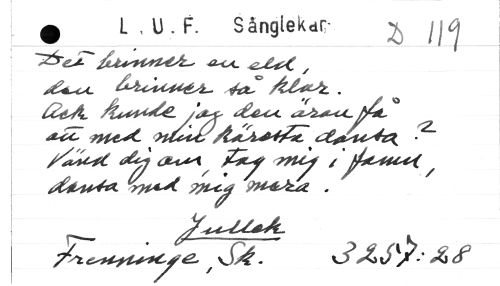 L. U. F. Sånglekar D 119
Det brinner en eld,
den brinner så klar.
Ack kunde jag den äran få
att med min käresta dansa?
Vänd dig om, tag mig i famn,
dansa med mig mera.
Jullek
Frenninge, Sk. 3257:28